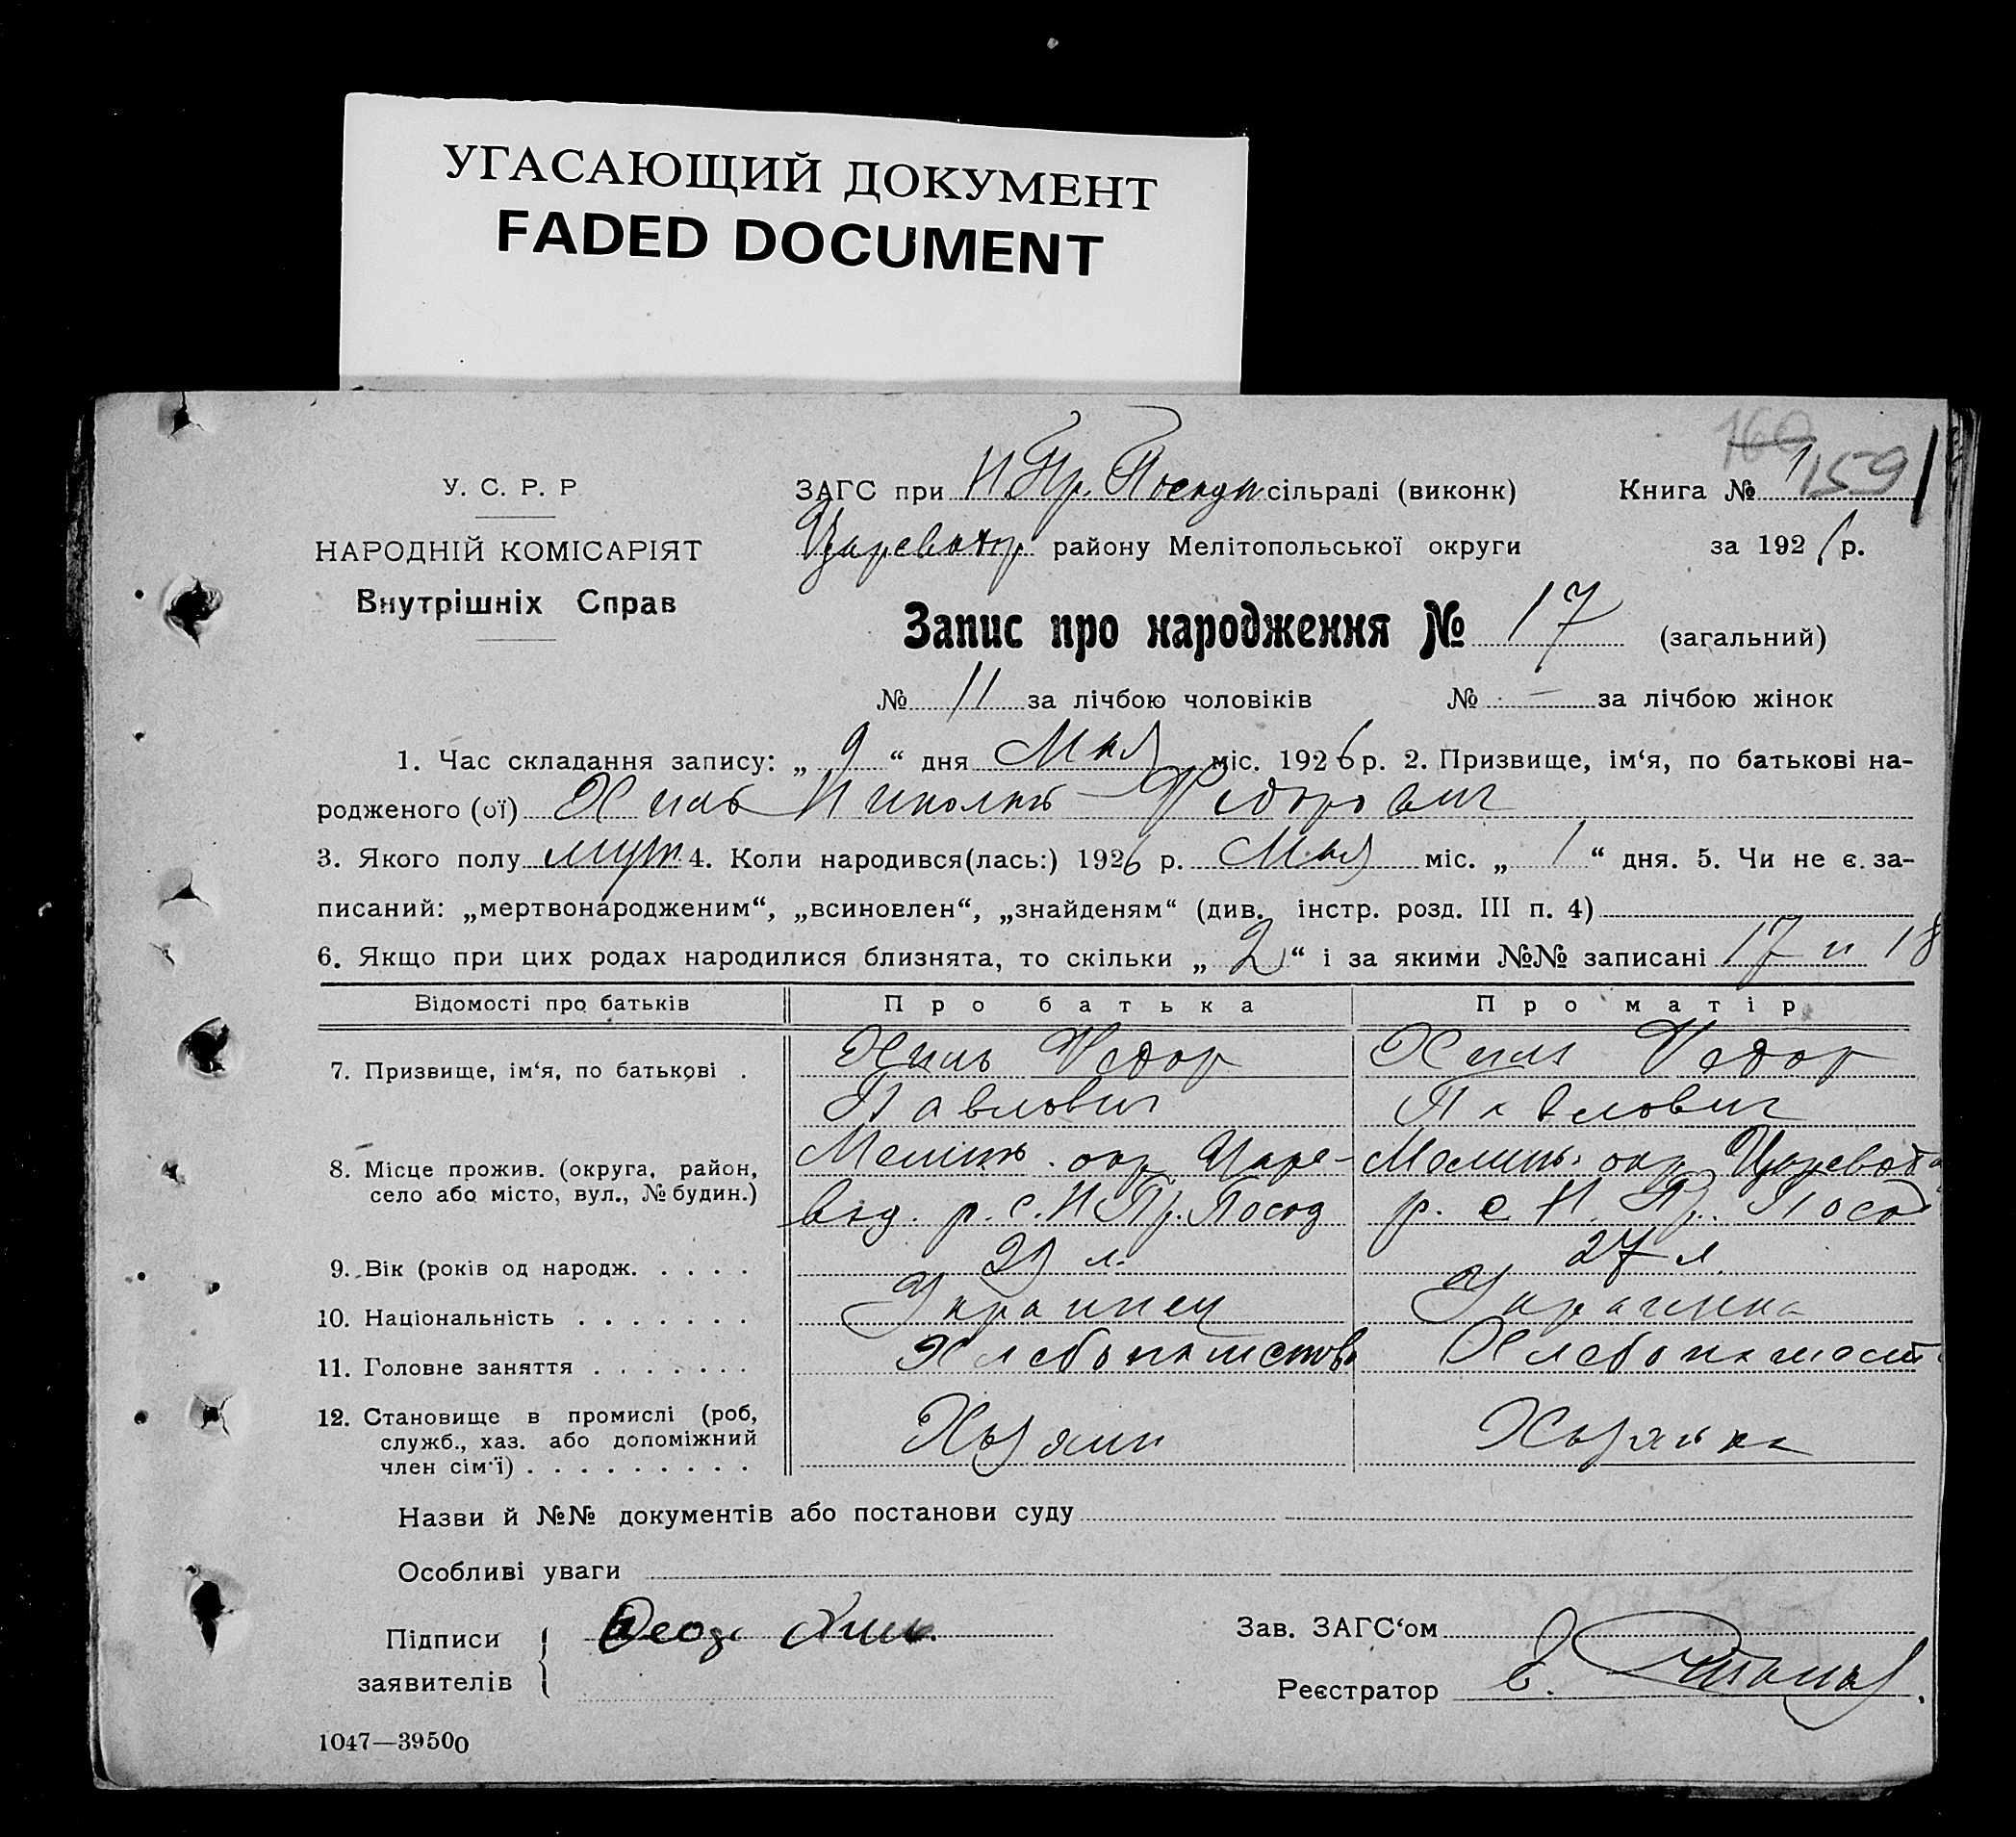 УГАСАЮЩИЙ ДОКУМЕНТ
FADED DOCUMENT
160
159
У. С. Р. Р
НАРОДНІЙ КОМІСАРІЯТ
Внутрішніх Справ
ЗАГС при Н. Пр. Посадн сільраді (виконк) Книга № 1
Царевотор району Мелітопольської округи за 1926 р.
Запис про народження № 17 (загальний)
№ 11 за лічбою чоловіків № — за лічбою жінок
1. Час складання запису: „ 9 “ дня Мая міс. 1926 р. 2. Призвище, ім‘я, по батькові на-
родженого (ої) Хиль Николай Федорович
3. Якого полу муж. 4. Коли народився(лась:) 1926 р. Мая міс. „ 1 “ дня. 5. Чи не є за-
писаний: „мертвонародженим“, „всиновлен“, „знайденям“ (див. інстр. розд. III п. 4)
6. Якщо при цих родах народилися близнята, то скільки „ 2 “ і за якими №№ записані 17 и 18
Відомості про батьків Про батька Про матір
7. Призвище, ім‘я, по батькові . Хиль Федор Хиль Федор
Павлович Павлович
8. Місце прожив. (округа, район, Меліт. окр. Царе- Мелит. окр. Царевод
село або місто, вул., № будин.) вод. р. с. Н Пр. Посад р. с Н. Пр. Посад
9. Вік (років од народж. . . . . л. 27 л.
10. Національність . . . . . . . Украинец Украинка
11. Головне заняття . . . . . . . Хлебопашество Хлебопашест
12. Становище в промислі (роб, Хозяин Хозяйка
служб., хаз. або допоміжний
член сім‘ї) . . . . . . . . .
Назви й №№ документів або постанови суду
Особливі уваги
Підписи Хиль Зав. ЗАГС‘ом
заявителів Реєстратор
1047—39500